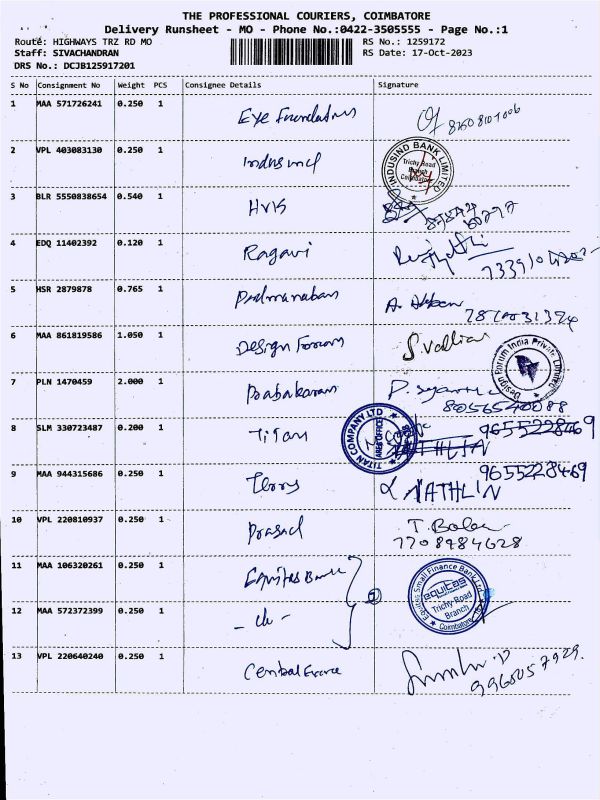 THE PROFESSIONAL COURIERS, COIMBATORE
Delivery Runsheet - MO - Phone No.:0422-3505555 - Page No.:1
Route: HIGHWAYS TRZ RD MO
RS No.: 1259172
Staff: SIVACHANDRAN
RS Date: 17-Oct-2023
DRS No.: DCJB125917201
S No Consignment No Weight PCS Consignee Details Signature
1 MAA 571726241 0.250 1 Eye Foundations
2 VPL 403083130 0.250 1 Indusind
INDUSIND BANK LIMITED
Trichy Road
Branch
Coimbatore
3 BLR 5550838654 0.540 1 HVIS
4 EDQ 11402392 0.120 1 Ragavi
5 HSR 2879878 0.765 1 Padmanaban
6 MAA 861819586 1.050 1 Design Forum
Design Forum India Private Limited
7 PLN 1470459 2.000 1 Prabakaran
8056540088
8 SLM 330723487 0.200 1 Titan
TITAN COMPANY LTD
AREA OFFICE
9655228469
9 MAA 944315686 0.250 1 Terry NATHLIN
9655228469
10 VPL 220810937 0.250 1 Prasad T. Balu
7708984628
11 MAA 106320261 0.250 1 Equitas Bank
Equitas Small Finance Bank Ltd
equitas
Trichy Road
Branch
Coimbatore
12 MAA 572372399 0.250 1 - do -
13 VPL 220640240 0.250 1